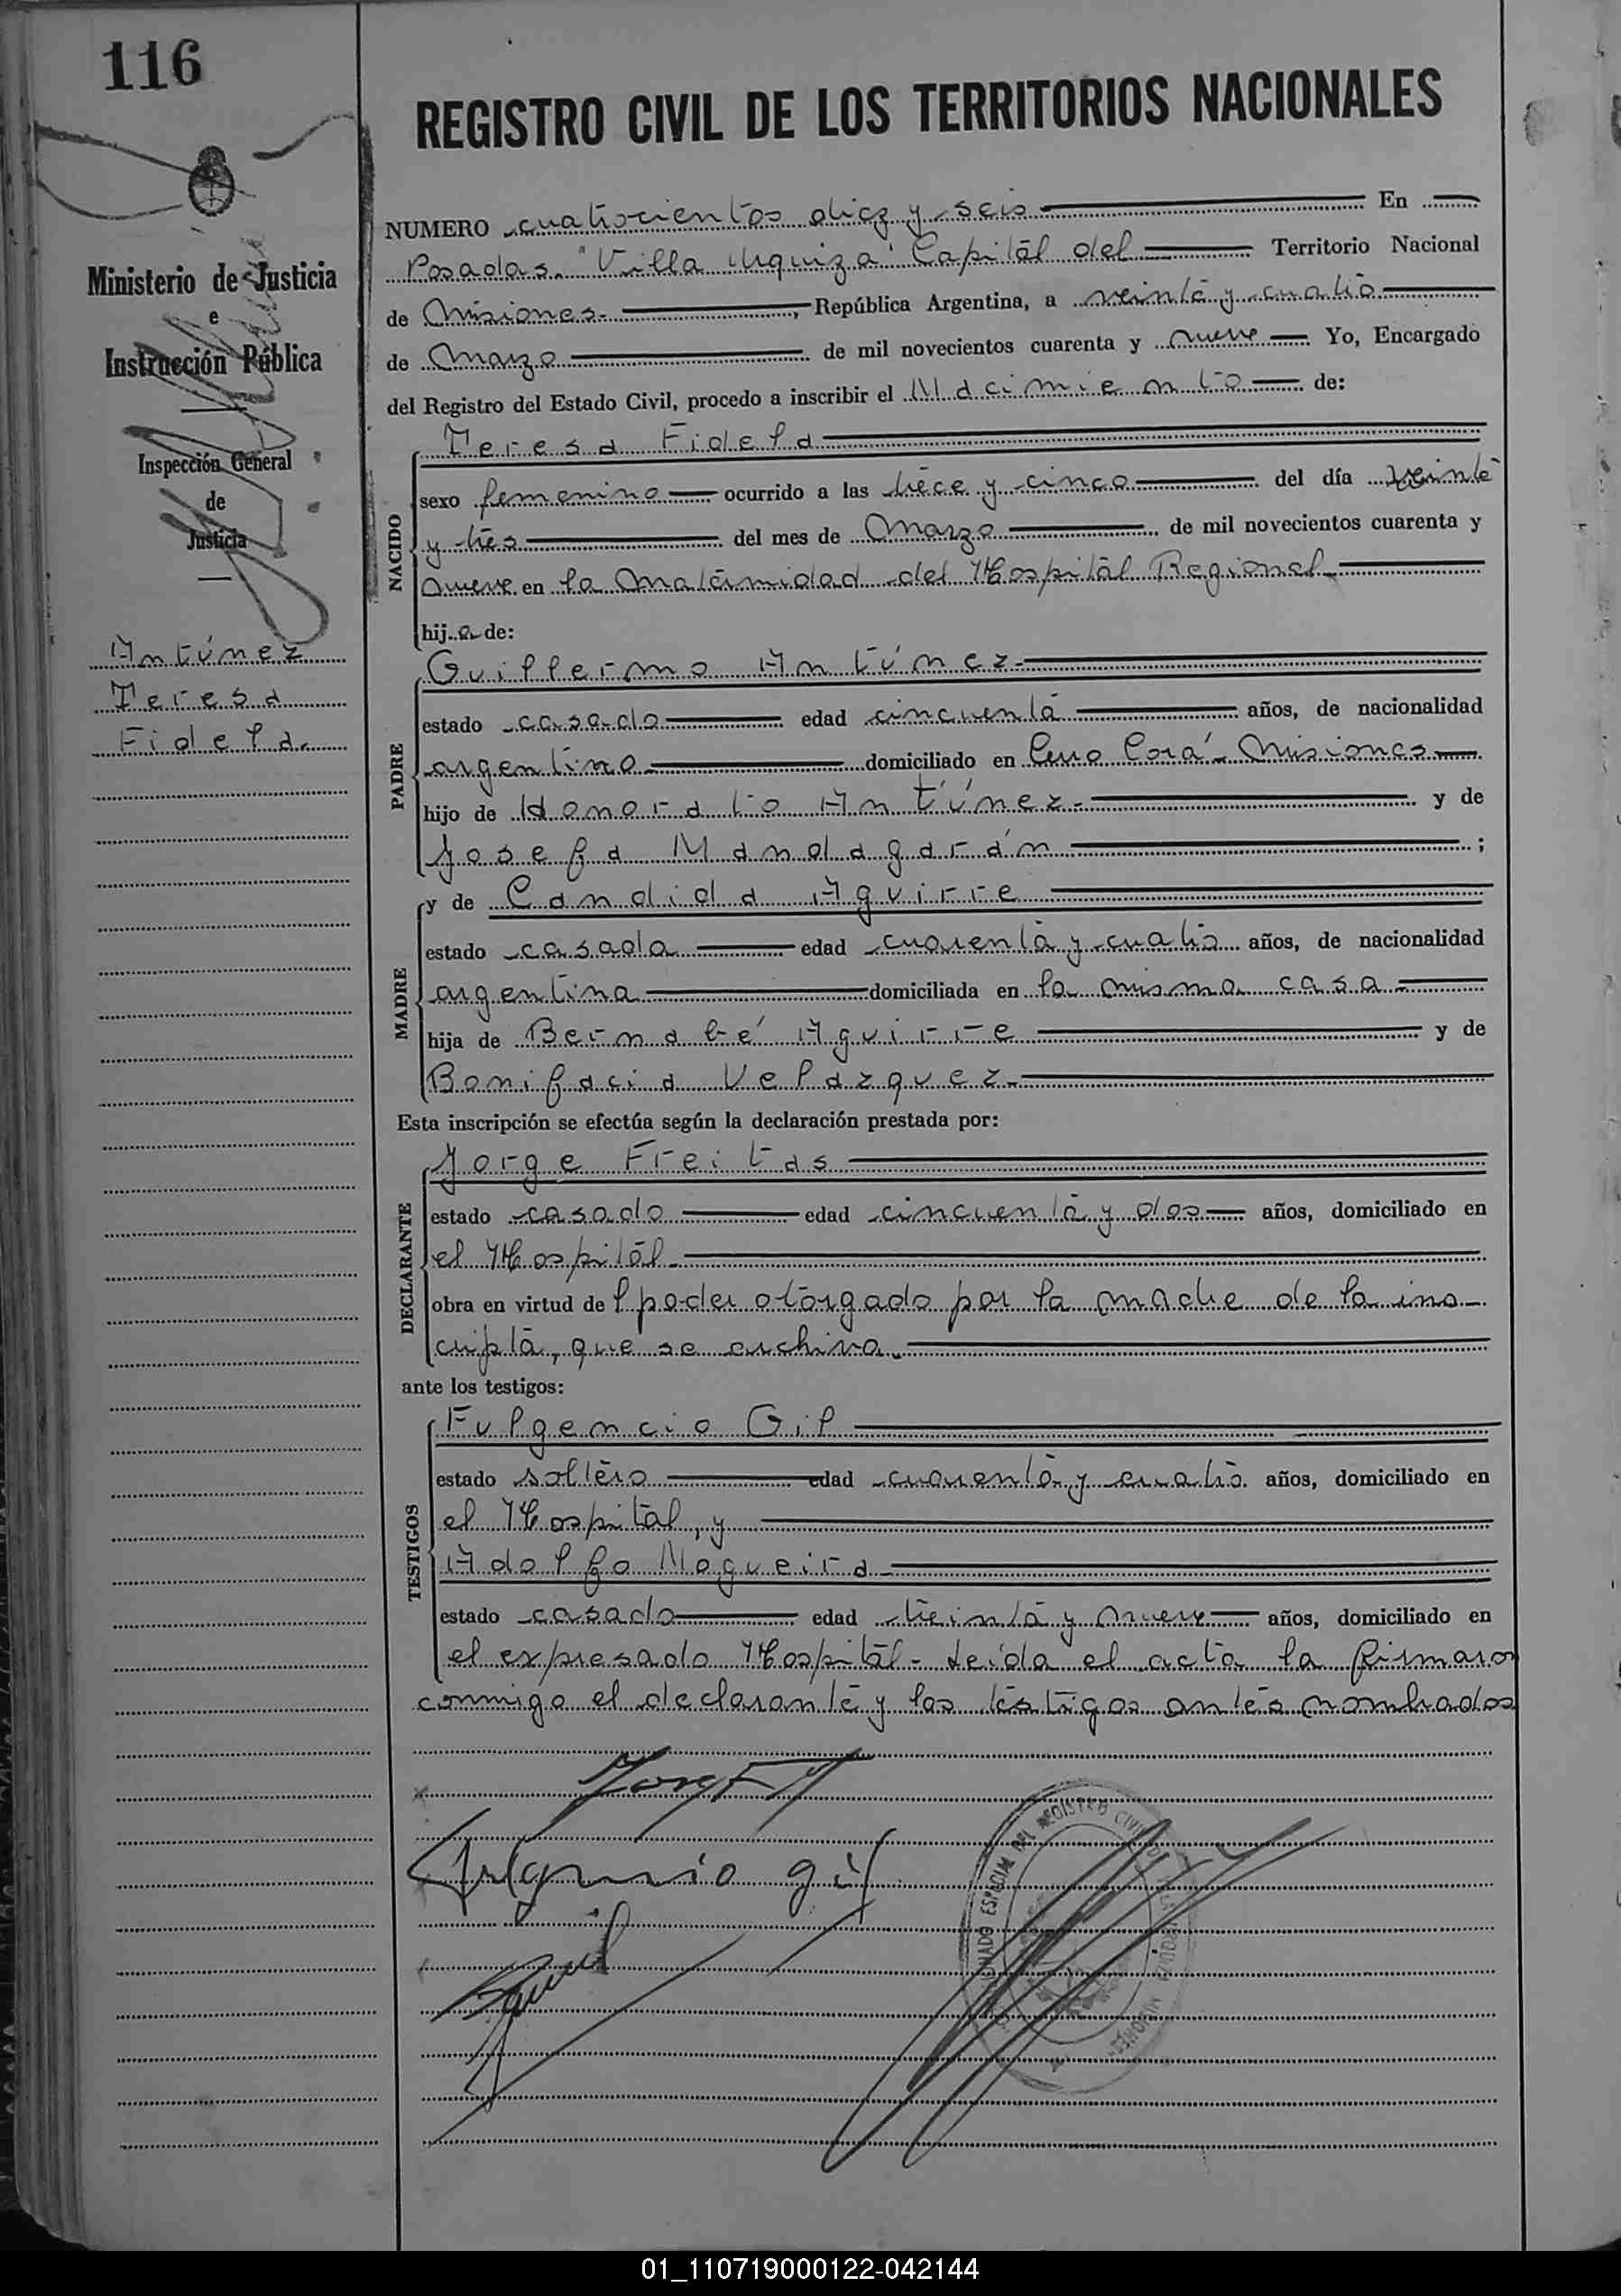 116
REGISTRO CIVIL DE LOS TERRITORIOS NACIONALES
Ministerio de Justicia
e
Instrucción Pública
Inspección General
de
Justicia
Antúnez
Teresa
Fidela.
NUMERO cuatrocientos diez y seis En
Posadas. "Villa Urquiza" Capital del Territorio Nacional
de Misiones. , República Argentina, a veinte y cuatro
de Marzo de mil novecientos cuarenta y nueve Yo, Encargado
del Registro del Estado Civil, procedo a inscribir el Nacimiento de:
Teresa Fidela
NACIDO
sexo femenino ocurrido a las trece y cinco del día veinte
y tres del mes de Marzo de mil novecientos cuarenta y
nueve en la Maternidad del Hospital Regional
hij a de:
Guillermo Antúnez
PADRE
estado casado edad cincuenta años, de nacionalidad
argentino domiciliado en Cerro Corá - Misiones
hijo de Honorato Antúnez y de
Josefa Mandagarán ;
y de Candida Aguirre
MADRE
estado casada edad cuarenta y cuatro años, de nacionalidad
argentina domiciliada en la misma casa
hija de Bernabé Aguirre y de
Bonifacia Velazquez
Esta inscripción se efectúa según la declaración prestada por:
Jorge Freitas
DECLARANTE
estado casado edad cincuenta y dos años, domiciliado en
el Hospital
obra en virtud de l poder otorgado por la madre de la ins-
cripta, que se archiva.
ante los testigos:
Fulgencio Gil
TESTIGOS
estado soltero edad cuarenta y cuatro años, domiciliado en
el Hospital, y
Adolfo Nogueira
estado casado edad treinta y nueve años, domiciliado en
el expresado Hospital - Leída el acta la firmaron
conmigo el declarante y los testigos antes nombrados
Fulgencio Gil
ESPECIAL DEL REGISTRO CIVIL
MISIONES
01_110719000122-042144